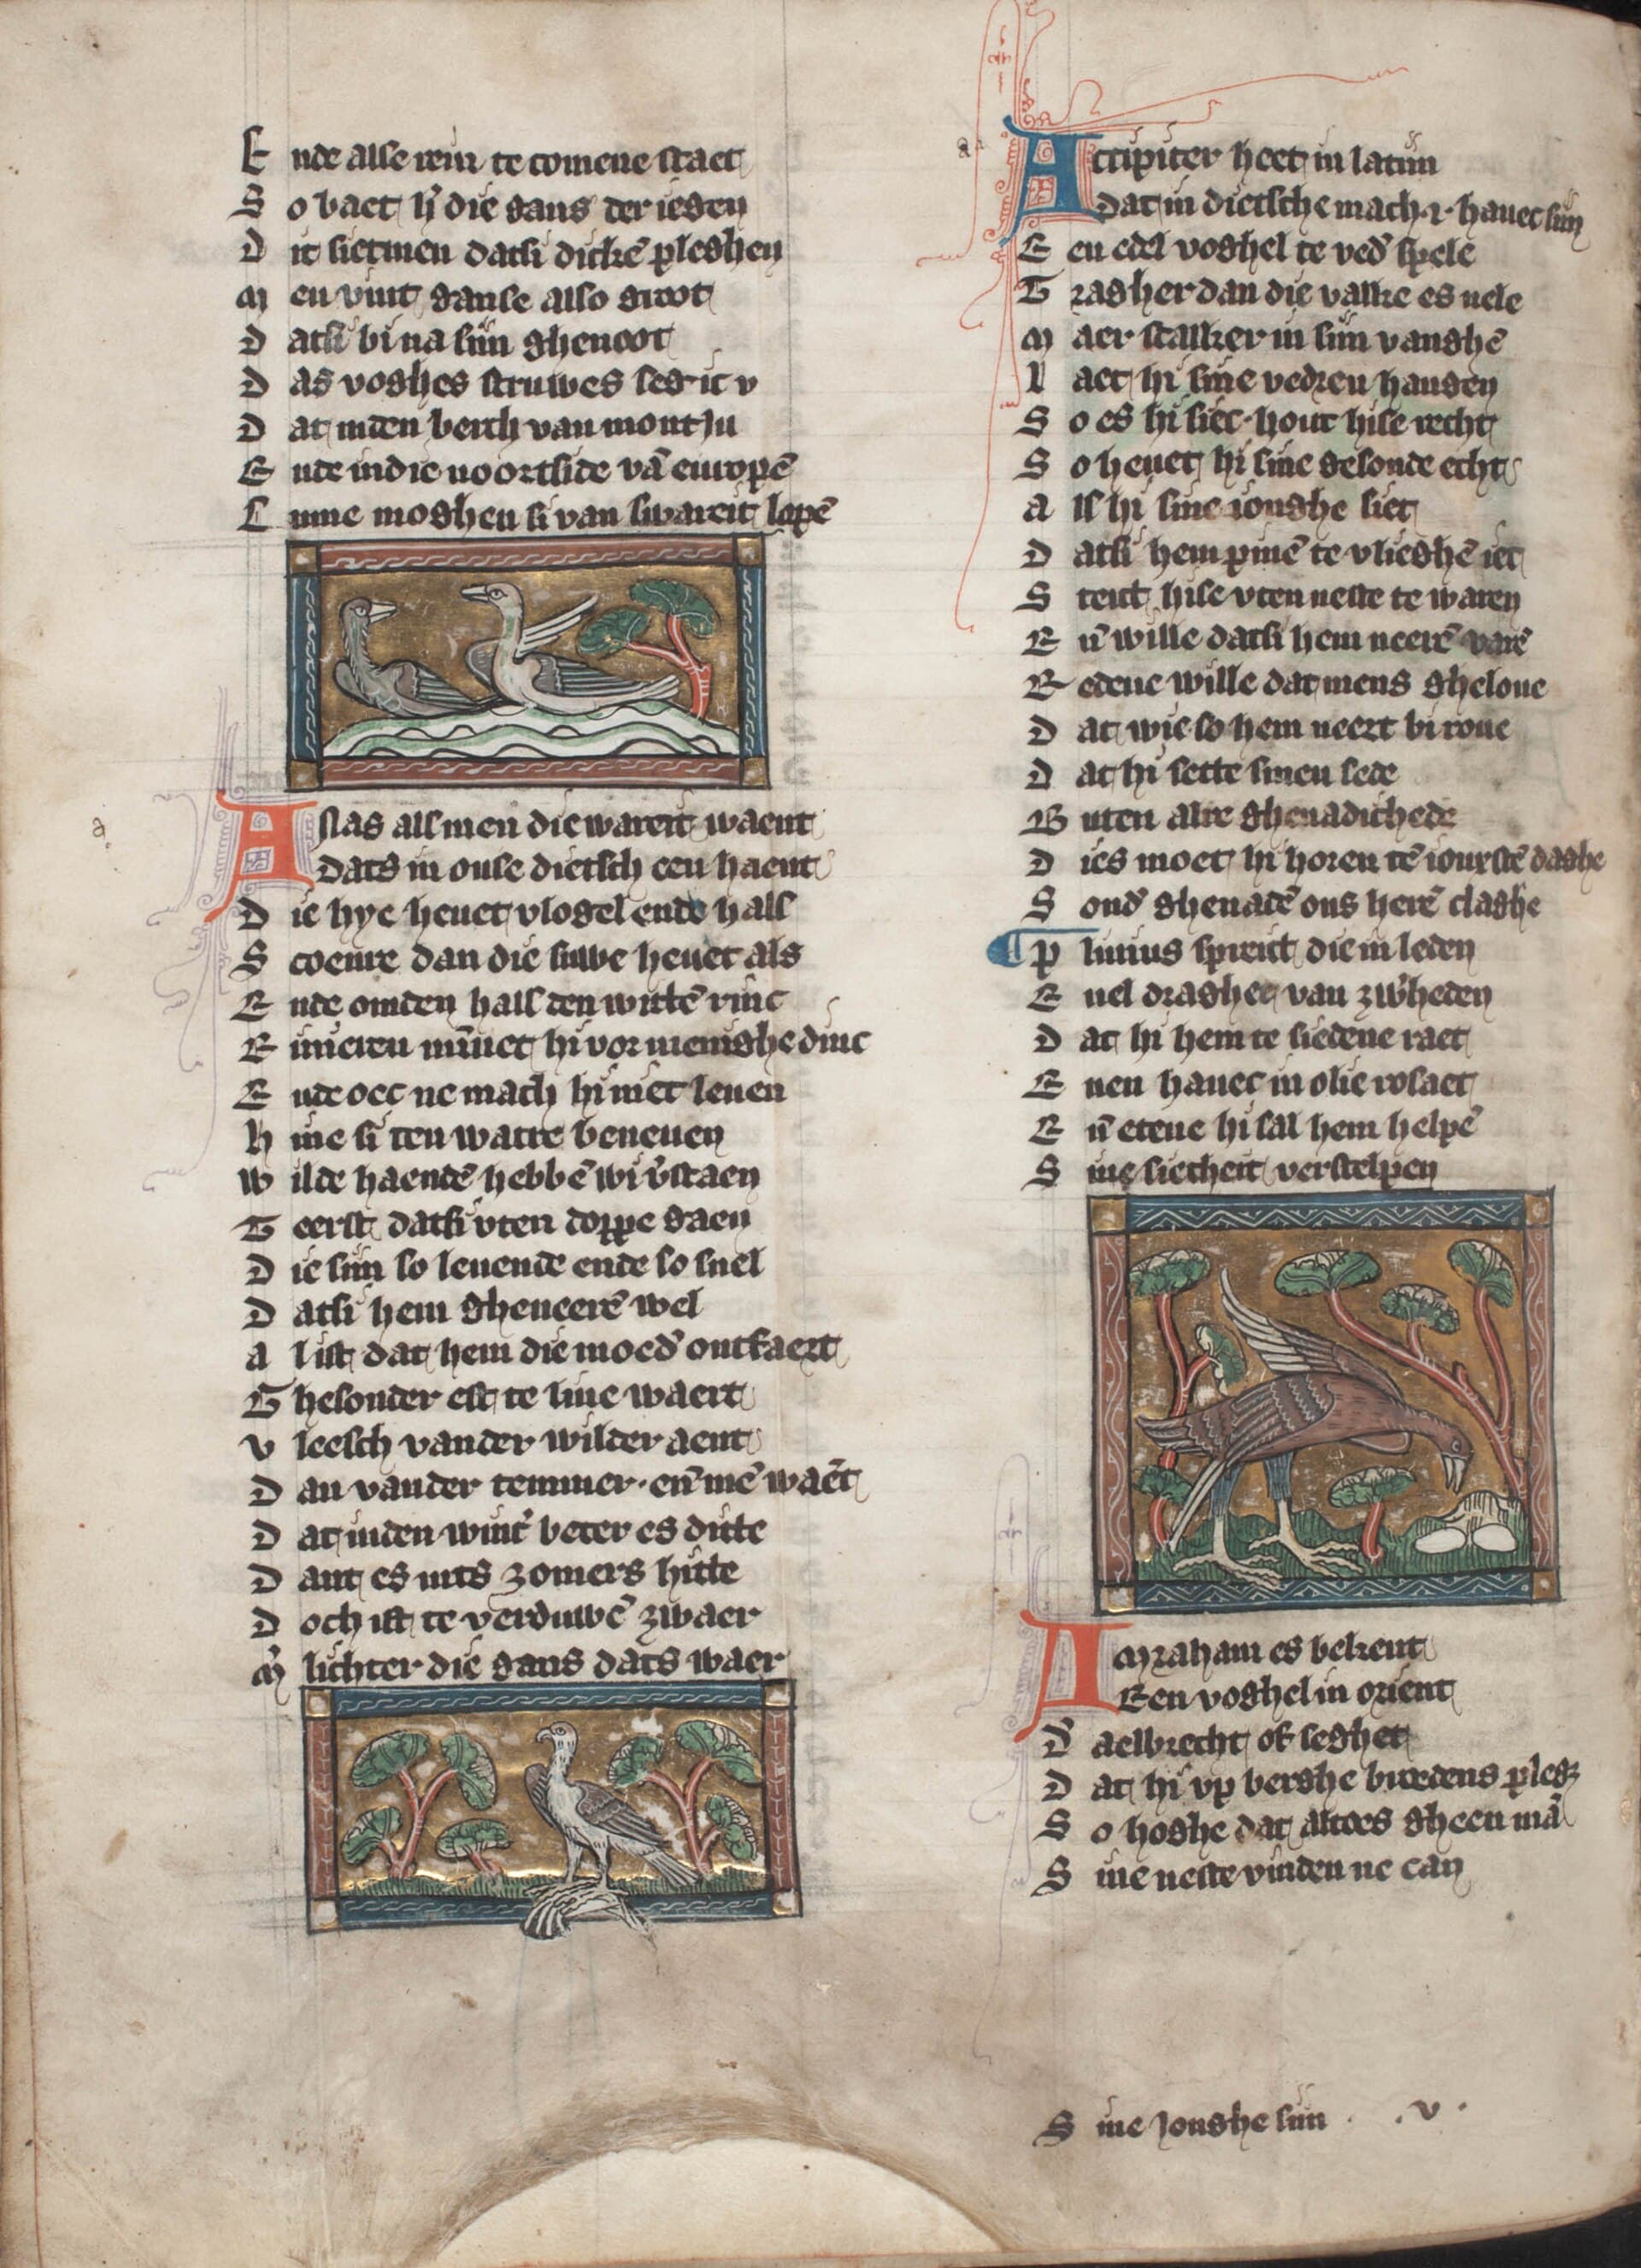 E nde alse rein te comene staet
S o baet hẽ die gans der iegen
D it sietmen datsi dickē pleghen
M en vint ganse also groot
D atsi bi na sijn ghenoot
D as voghes struwes seg ic v
D at inden berch van montiu
E nde in die noortside vā europē
C ume moghen si van swareit lopē
A nas alsmen die wareit waent
Dats in onse dietsch een haent
D ie hye heuet vlogel ende hals
S coenre dan die siwe heuet als
E nde omden hals den wittē rinc
R iuieren minnet hi vor menighe dinc
E nde oec ne mach hi niet leuen
H ine si ten watre beneuen
W ilde haendē hebbē wi v̄staen
T eerst datsi vten dorpe gaen
D ie sijn so leuende ende so snel
D atsi hem gheneerē wel
A l ist dat hem die moed̄ ontfaert
G hesonder est te sine waert
V leesch vander wilder aent
D an vander temmer · en̄ mē waēt
D at inden wint̄ beter es ditte
D ant es mts zomers hitte
D och ist te verduwē zwaer
M̄ lichter die gans dats waer
a
A ccipiter heet in latijn
Dat in dietsche mach · i · hauec sijn
E en edel voghel te ved̄ spele
T ragher dan die valke es vele
M aer starker in sijn vanghē
L aet hi sine vedren hangen
S o es hi siec · hout hise recht
S o heuet hi sine gesonde echt
A ls hi sine ionghe siet
D atsi hem pinē te vlieghē iet
S teict hise vten neste te waren
E n̄ wille datsi hem neerē varē
R edene wille dat mens gheloue
D at wie so hem neert bi roue
D at hi sette sinen sede
B uten alre ghenadichede
D ies moet hi horen tē ioncstē daghe
S ond̄ ghenadē ons herē claghe
¶ P linius spreict die in leden
E uel draghet van zw̄heden
D at hi hem te siedene raet
E nen hauec in olie rosaet
E n̄ etene hi sal hem helpē
S ine siecheit verstelpen
A mraham es bekent
Een voghel in orient
D̄ aelbrecht of seghet
D at hi vp berghe broedens pleg
S o hoghe dat altoes gheen mā
S ine neste vinden ne can
S ine ionghe sijn · v ·